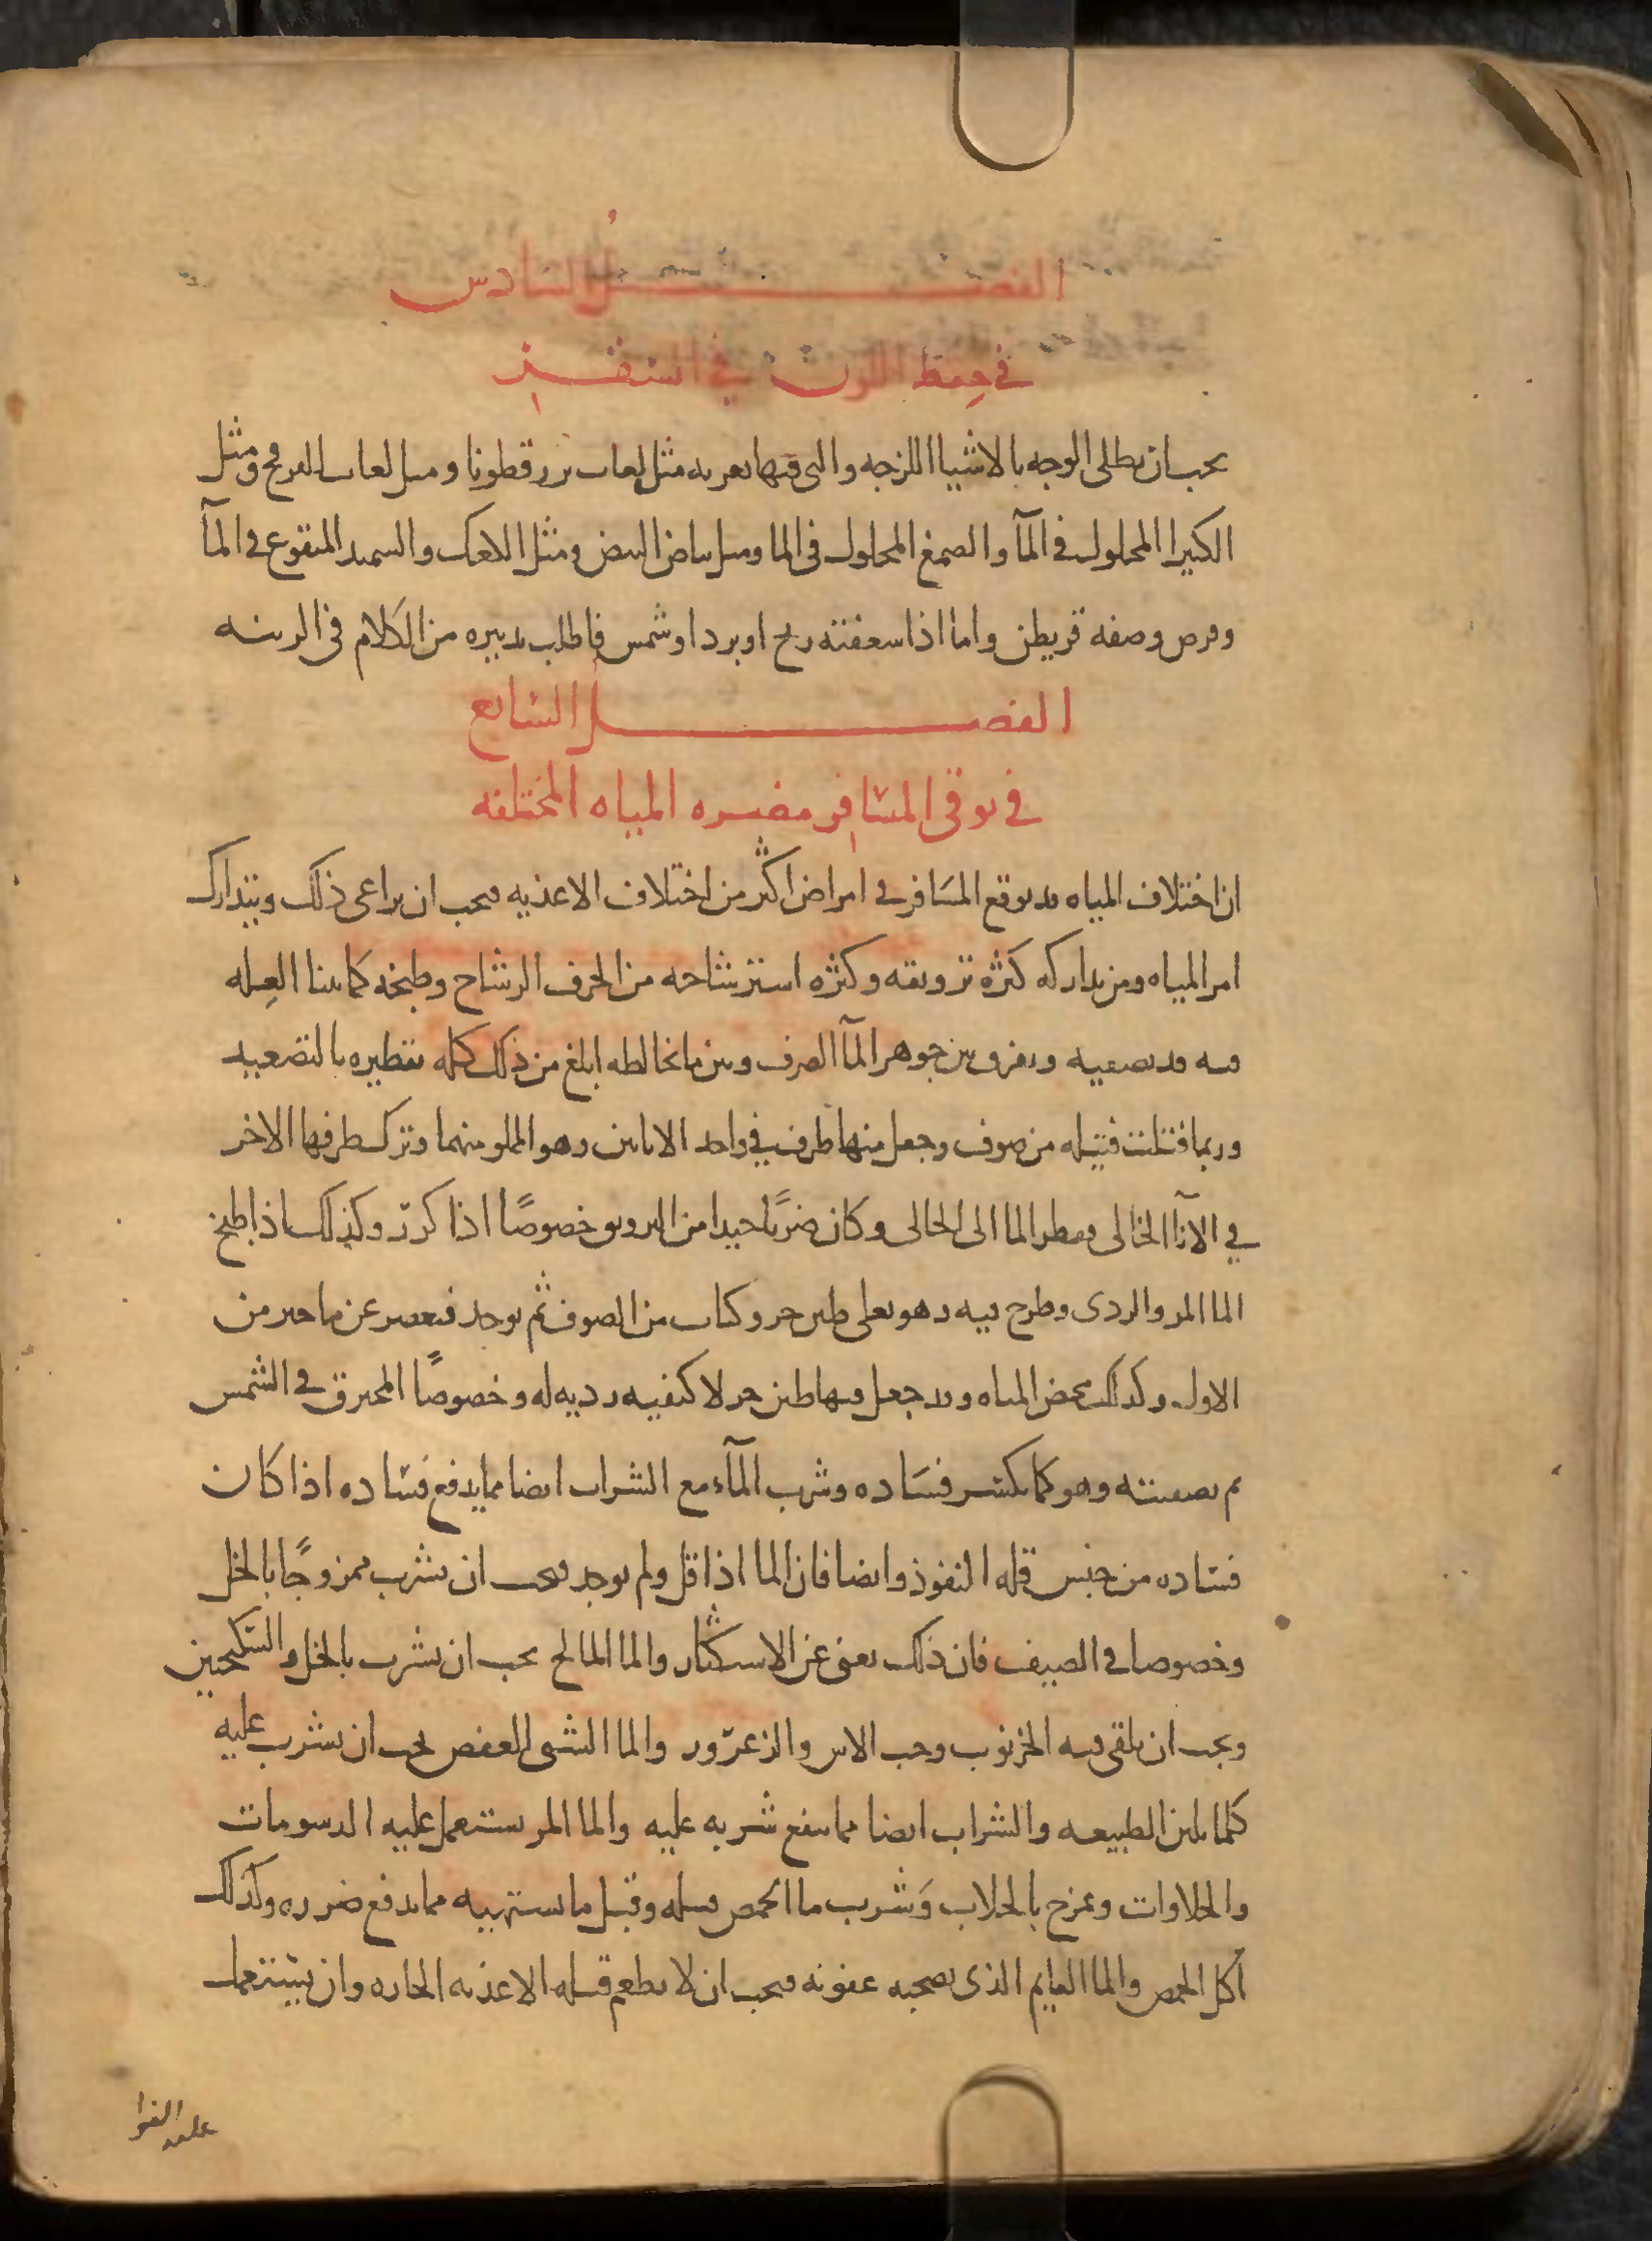 الفصل السادس
في حفظ اللون في السفر
يجب ان يطلى الوجه بالاشيا اللزجه والتي فيها تغريه مثل لعاب بزرقطونا ومثل لعاب العرفج ومثل
الكثيرا المحلول في المآ والصمغ المحلول في الما ومثل بياض البيض ومثل الكعك والسميد المنقوع في المآ
وقرص وصفه قريطن واما اذا سعفته ريح او برد او شمس فاطلب تدبيره من الكلام في الزينه
الفصل السابع
في توقي المسافر مضره المياه المختلفه
ان اختلاف المياه قد يوقع المسافر في امراض اكثر من اختلاف الاغذيه فيجب ان يراعى ذلك ويتدارك
امر المياه ومن تداركه كثره ترويقه وكثره استرشاحه من الخزف الرشاح وطبخه كما بينا العله
فيه قد يصفيه ويفرق بين جوهر المآ الصرف وبين ما يخالطه ابلغ من ذلك كله تقطيره بالتصعيد
وربما فتلت فتيله من صوف وجعل منها طرف في واحد الانايين وهو المملو منهما وترك طرفها الاخر
في الانآ الخالي فقطر الما الى الخالي وكان ضربًا جيدا من الترويق خصوصًا اذا كرر وكذلك اذا طبخ
الما المر والردى وطرح فيه وهو يغلى طين حر وكباب من الصوف ثم توخذ فتعصر عن ما خير من
الاول وكذلك مخض المياه وقد جعل فيها طين حر لا كيفيه رديه له وخصوصًا المحترق في الشمس
ثم تصفيته وهو كما يكسر فساده وشرب المآء مع الشراب ايضا مما يدفع فساده اذا كان
فساده من جنس قله النفوذ وايضا فان الما اذا قل ولم يوجد فيجب ان يشرب ممزوجًا بالخل
وخصوصا في الصيف فان ذلك يغنى عن الاستكثار والما المالح يجب ان يشرب بالخل والسكنجبين
ويجب ان يلقى فيه الخرنوب وحب الاس والزعرور والما الشبى العفص يجب ان يشرب عليه
كلما يلين الطبيعه والشراب ايضا مما ينفع شربه عليه والما المر يستعمل عليه الدسومات
والحلاوات ويمزج بالجلاب وشرب ما الحمص قبله وقبل ما يستهيه مما يدفع ضرره وكذلك
اكل الحمص والما القايم الذى يصحبه عفونه فيجب ان لا يطعم قبله الاغذيه الحاره وان يستعمل
عليه الفوا